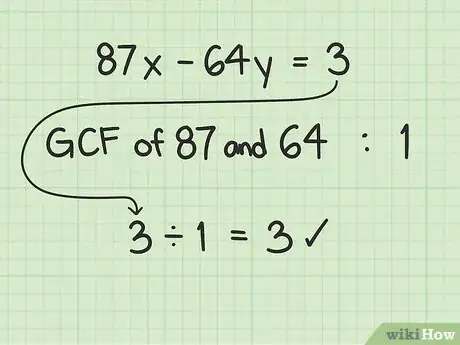 87x − 64y = 3
GCF of 87 and 64 : 1
3 ÷ 1 = 3 ✓
wikiHow